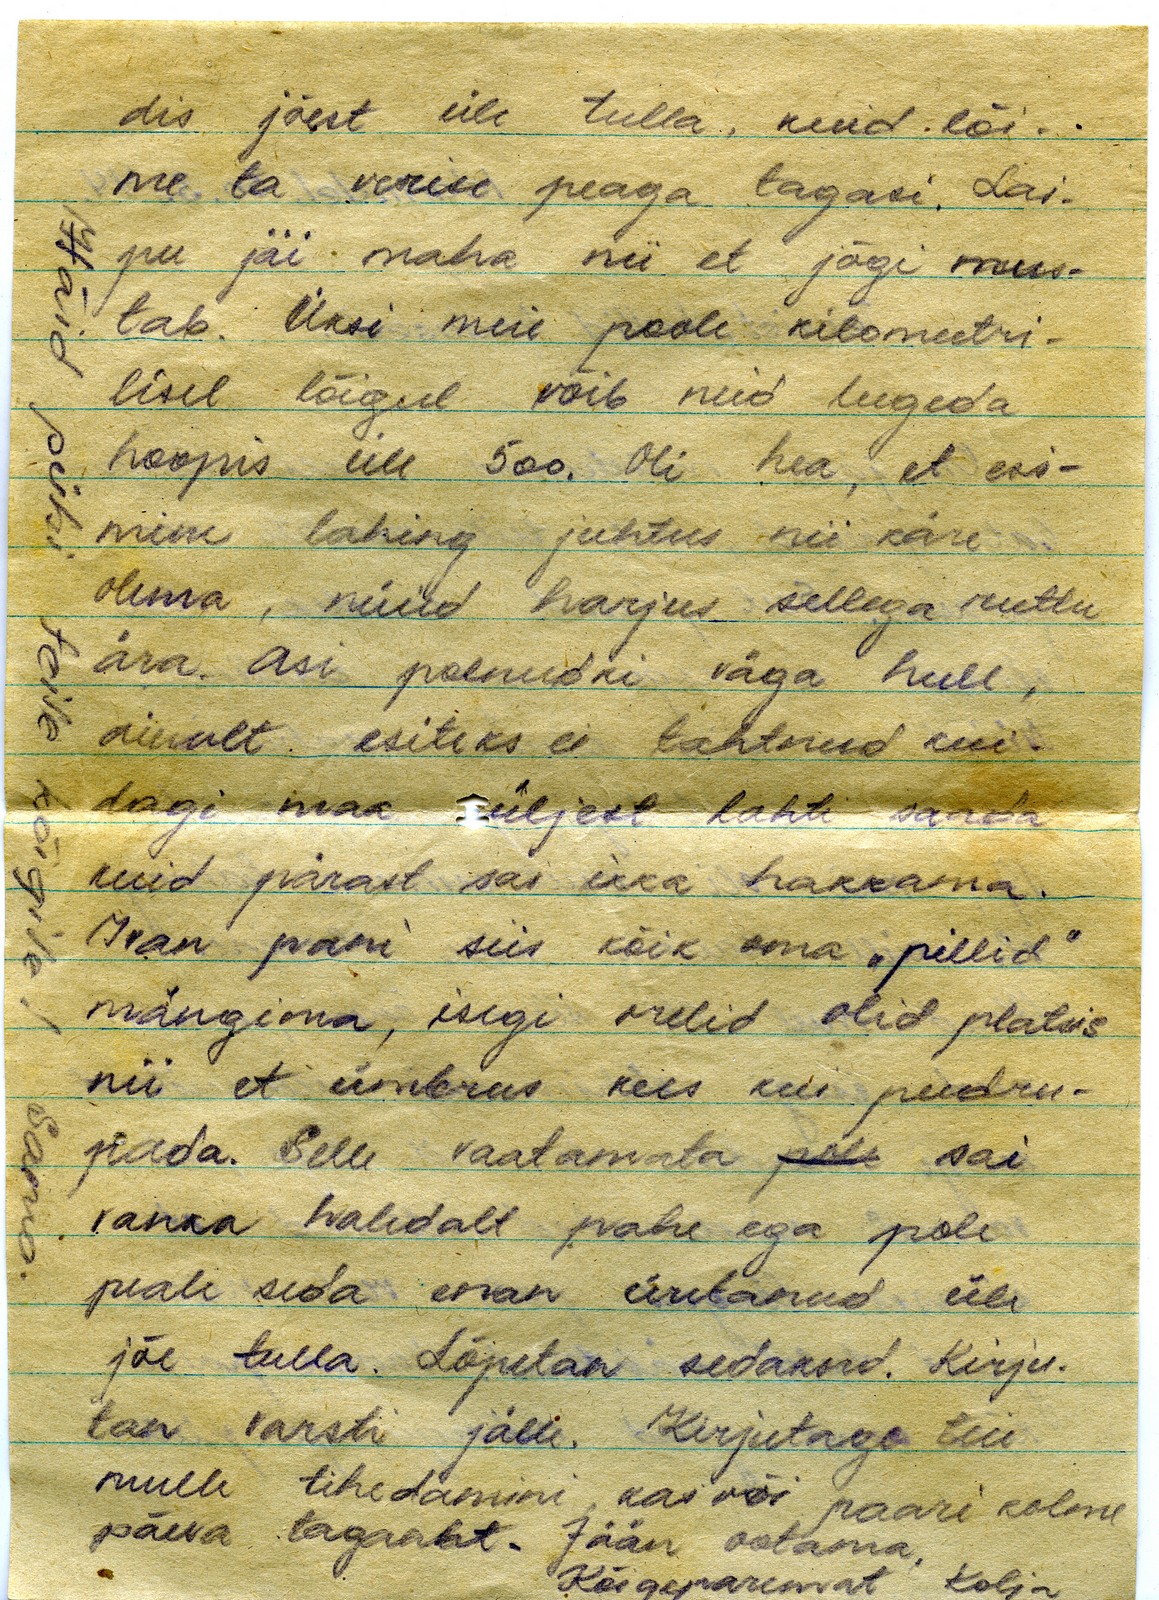 dis jõest üle tulla, kuid lõi-
me ta verise peaga tagasi. Lai-
pu jäi maha nii et jõgi mus-
tab. Üksi meie poole kilomeetri-
lisel lõigul võib neid lugeda
hoopis üle 500. Oli hea, et esi-
mene lahing juhtus nii käre
olema, nüüd harjus sellega ruttu
ära. Asi polnudki väga hull,
ainult esiteks ei tahtnud kui-
dagi maa küljest lahti saada
kuid pärast sai ikka hakkama.
Ivan pani siis kõik oma „pillid"
mängima, isegi orelid olid platsis
nii et ümbrus kees kui pudru-
pada. Selle vaatamata pole sai
vanka haledalt pähe ega pole
peale seda enam üritanud üle
jõe tulla. Lõpetan sedakord. Kirju-
tan varsti jälle. Kirjutage teie
mulle tihedamini, kas või paari kolme
päeva tagant. Jään ootama.
Kõigeparemat Kolja
Häid pühi teile kõigile! Samo.